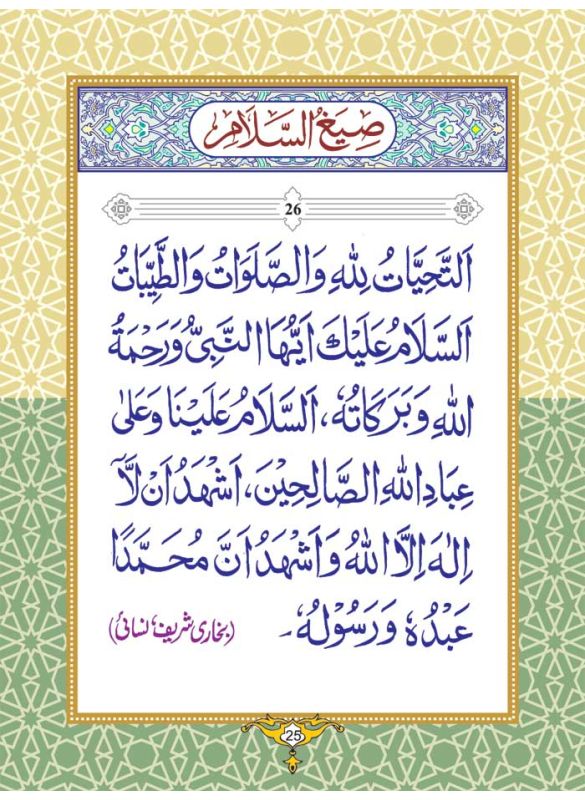 صِيَغُ السَّلَامِ
26
اَلتَّحِيَّاتُ لِلّٰهِ وَالصَّلَوَاتُ وَالطَّيِّبَاتُ
اَلسَّلَامُ عَلَيْكَ اَيُّهَا النَّبِيُّ وَرَحْمَةُ
اللهِ وَبَرَكَاتُهٗ، اَلسَّلَامُ عَلَيْنَا وَعَلٰى
عِبَادِ اللهِ الصَّالِحِيْنَ، اَشْهَدُ اَنْ لَّآ
اِلٰهَ اِلَّا اللهُ وَاَشْهَدُ اَنَّ مُحَمَّدًا
عَبْدُهٗ وَرَسُوْلُهٗ۔ (بخاری شریف، نسائیؒ)
25